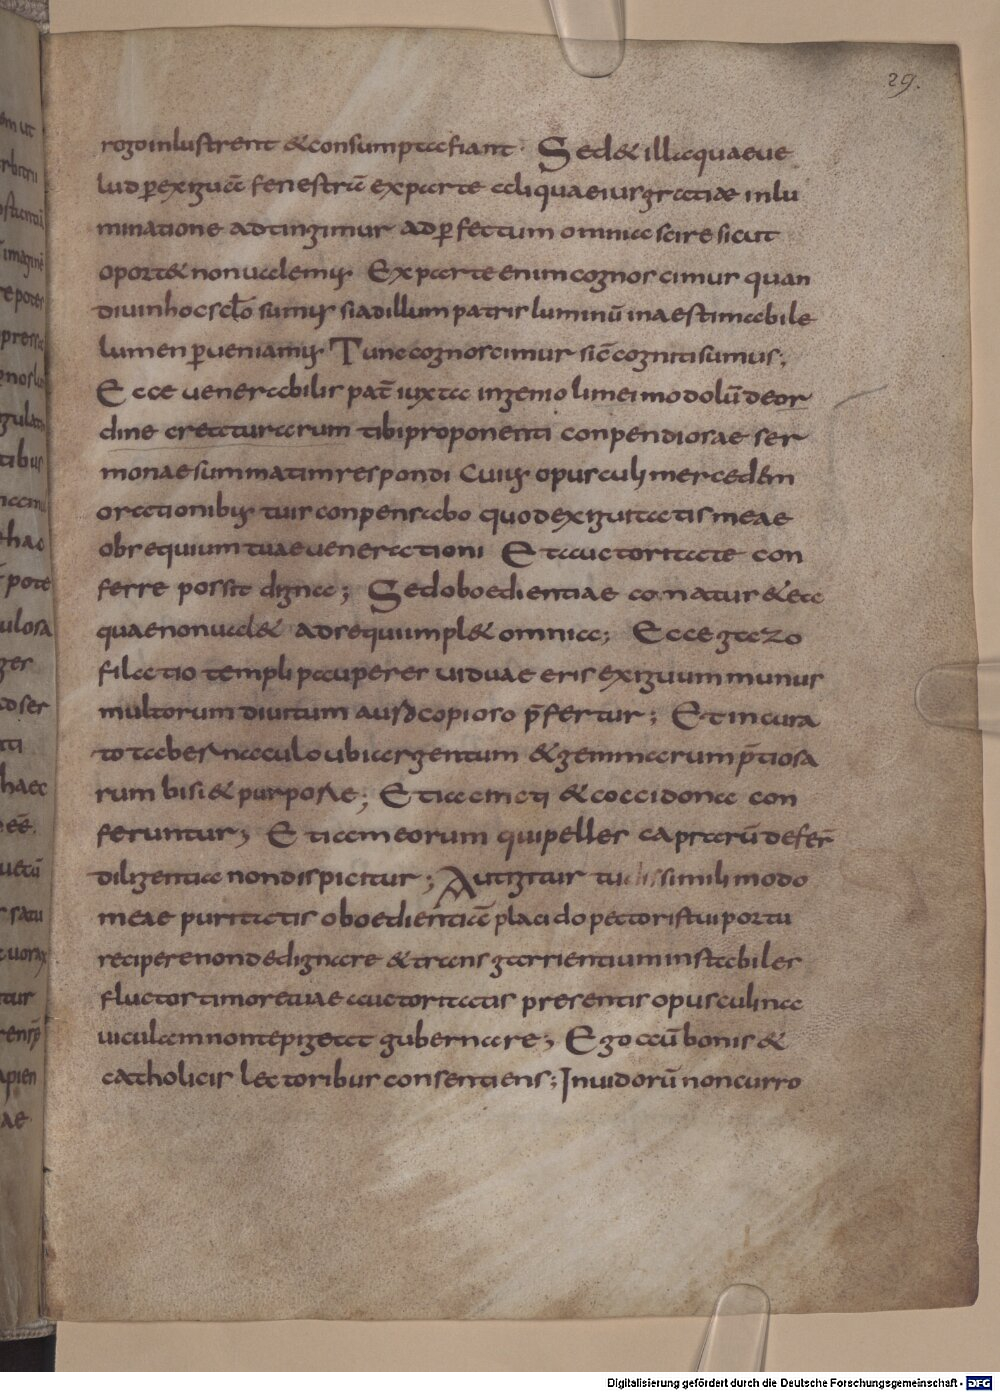 29.
rogo inlustrent & consumpta fiant. Sed & illa quae ue
lud p̱ exiguā fenestrā ex parte aliquae iur gratiae inlu
minatione adtingimur ad p̱fectum omnia scire sicut
oport& non ualemus. Ex parte enim cognoscimur quan
diu in hoc sc̄lo sumus si ad illum patris luminū inaestimabile
lumen p̱ueniamus. Tunc cognoscimur sic̄ cogniti sumus;
Ecce uenerabilis pat̄ iuxta ingenioli mei modolū de or
dine creaturarum tibi proponenti conpendiosae ser
monae summatim respondi Cuius opusculi mercedem
orationibus tuis conpensabo quod exiguitatis meae
obsequium tuae uenerationi Et auctoritate con
ferre possit digna; Sed oboedientiae conatur & ea
quae non ual& adsequi impl& omnia; Ecce gazo
filatio templi pauperes uiduae eris exiguum munus
multorum diuitum auso copioso p̄fertur; Et in cura
to tabernaculo ubi argentum & gemmarum p̄tiosa
rum bisi & purporae; Et iacincti & cocci dona con
feruntur; Etiam eorum qui pelles caprarū defer̄
diligentia non dispicitur; Aut igitur tu simili modo
meae puritatis oboedientiā placido pectoris tui portu
recipere non dedignare & trans garrientium instabiles
fluctos timore tuae auctoritatis presentis opusculi na
uiculam non te pigeat gubernare; Ego cū bonis &
catholicis lectoribus consentiens; Inuidorū non curro
Digitalisierung gefördert durch die Deutsche Forschungsgemeinschaft - DFG